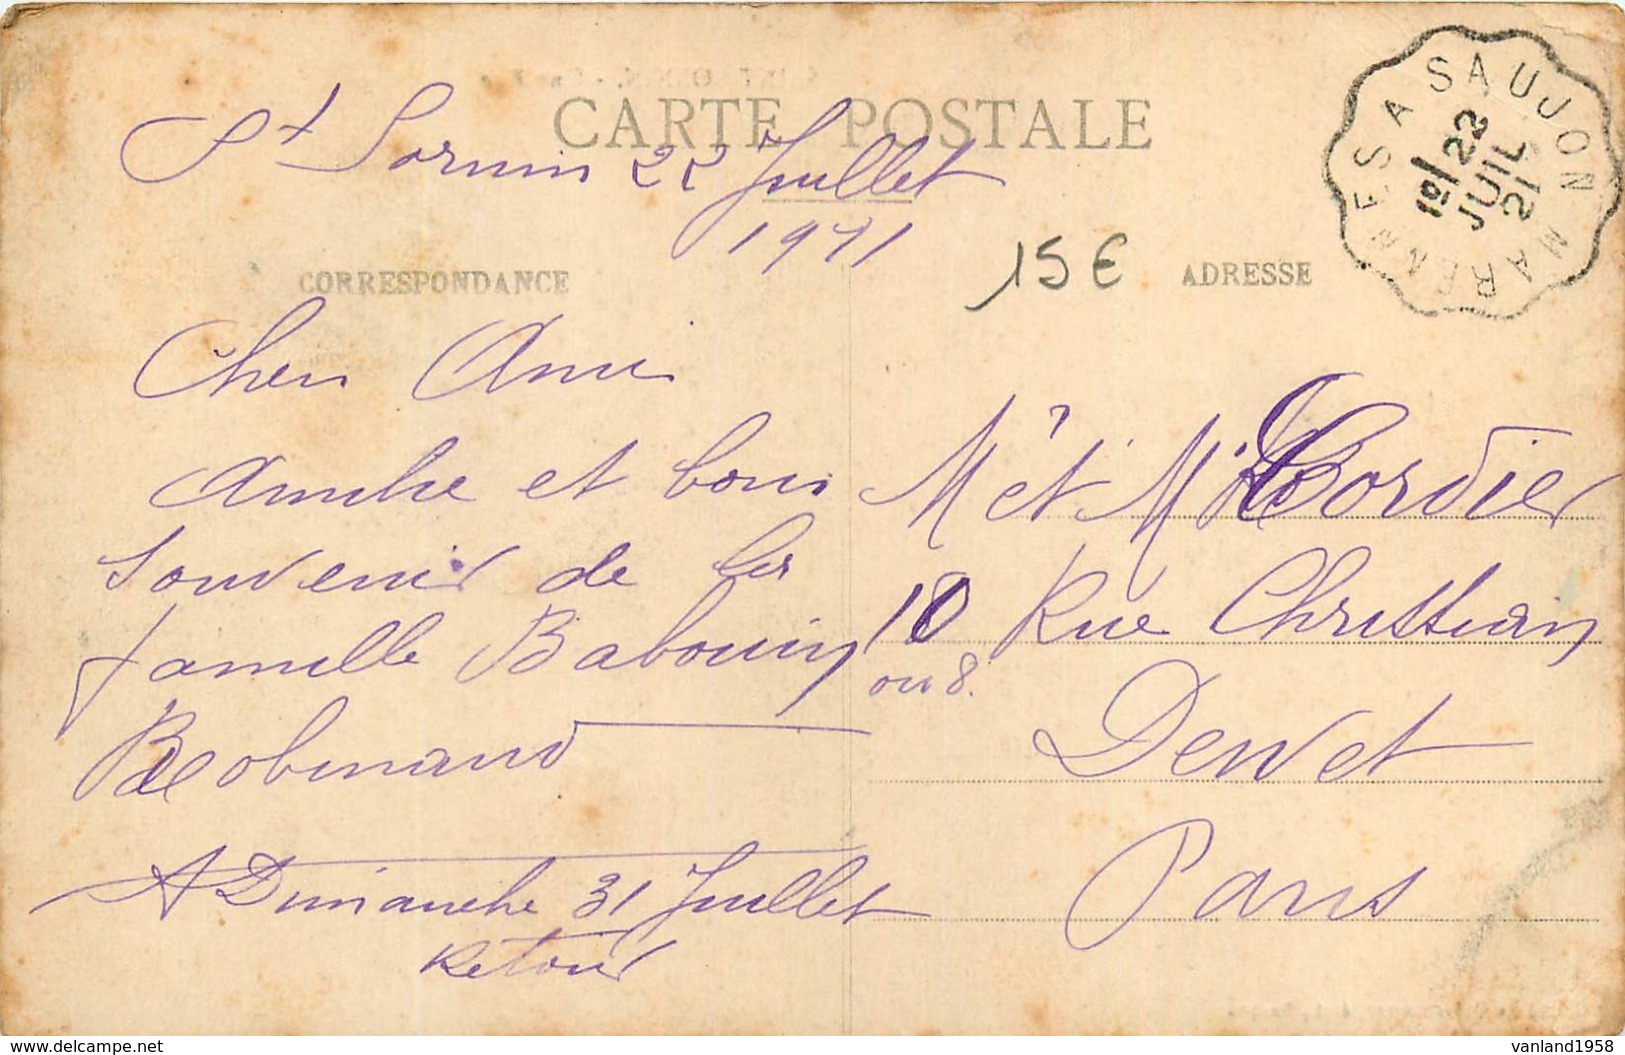 CARTE POSTALE
St Sornin 22 Juillet
1921
CORRESPONDANCE
Cher Ami
Amitié et bon
souvenir de la
famille Babouin
A Dimanche 31 Juillet
Retour
15€
ADRESSE
Mr et Mme Cordier
18 Rue Christian
ou 8.
Dewet
Paris
MARENNES A SAUJON
1º/ 22
JUIL
21
www.delcampe.net
vanland1958